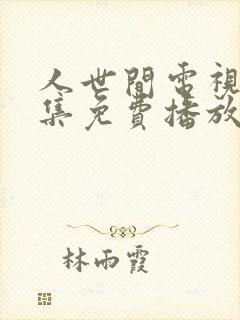 人世間電視
集免費播放
林雨霞